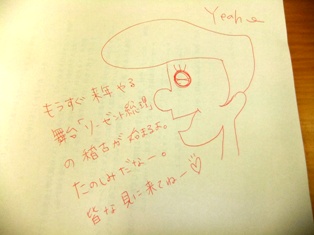 Yeah
もうすぐ来年やる
舞台「リーゼント総理」
の稽古が始まるよ。
たのしみだなー。
皆な見に来てねー♡